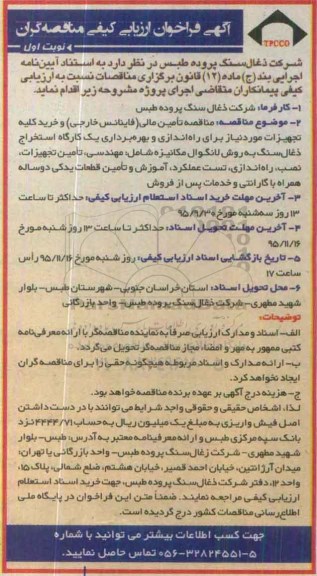 آگهی فراخوان ارزیابی کیفی مناقصه گران
نوبت اول
TPCCO
شرکت ذغال سنگ پروده طبس در نظر دارد به استناد آیین نامه
اجرایی بند (ج) ماده (۱۲) قانون برگزاری مناقصات نسبت به ارزیابی
کیفی پیمانکاران متقاضی اجرای پروژه مشروحه زیر اقدام نماید.
۱- کارفرما: شرکت ذغال سنگ پروده طبس
۲- موضوع مناقصه: مناقصه تأمین مالی (فاینانس خارجی) و خرید کلیه
تجهیزات مورد نیاز برای راه اندازی و بهره برداری یک کارگاه استخراج
ذغال سنگ به روش لانگوال مکانیزه شامل: مهندسی، تأمین تجهیزات،
نصب، راه اندازی، تست عملکرد، آموزش و تأمین قطعات یدکی دوساله
همراه با گارانتی و خدمات پس از فروش
۳- آخرین مهلت خرید اسناد استعلام ارزیابی کیفی: حداکثر تا ساعت
۱۳ روز سه شنبه مورخ ۹۵/۹/۳۰
۴- آخرین مهلت تحویل اسناد: حداکثر تا ساعت ۱۳ روز شنبه مورخ
۹۵/۱۱/۱۶
۵- تاریخ بازگشایی اسناد ارزیابی کیفی: روز شنبه مورخ ۹۵/۱۱/۱۶ رأس
ساعت ۱۷
۶- محل تحویل اسناد: استان خراسان جنوبی- شهرستان طبس- بلوار
شهید مطهری- شرکت ذغال سنگ پروده طبس- واحد بازرگانی
توضیحات:
الف- اسناد و مدارک ارزیابی صرفاً به نماینده مناقصه گر با ارائه معرفی نامه
کتبی ممهور به مهر و امضا، مجاز مناقصه گر تحویل می گردد.
ب- ارائه مدارک و اسناد مربوطه هیچگونه حقی را برای مناقصه گران
ایجاد نخواهد کرد.
ج- هزینه درج آگهی بر عهده برنده مناقصه خواهد بود.
لذا، اشخاص حقیقی و حقوقی واجد شرایط می توانند با در دست داشتن
اصل فیش واریزی به مبلغ یک میلیون ریال به حساب ۴۴۴۴/۷۱ نزد
بانک سپه مرکزی طبس و ارائه معرفینامه معتبر به آدرس: طبس- بلوار
شهید مطهری- شرکت زغال سنگ پروده طبس- واحد بازرگانی یا تهران:
میدان آرژانتین، خیابان احمد قصیر، خیابان هشتم، ضلع شمالی، پلاک ۱۵،
واحد ۱۲، دفتر شرکت ذغال سنگ پروده طبس، جهت خرید اسناد استعلام
ارزیابی کیفی مراجعه نمایند. ضمناً متن این فراخوان در پایگاه ملی
اطلاع رسانی مناقصات کشور درج گردیده است.
جهت کسب اطلاعات بیشتر می توانید با شماره
۵-۳۲۸۲۴۵۵۱-۰۵۶ تماس حاصل نمایید.